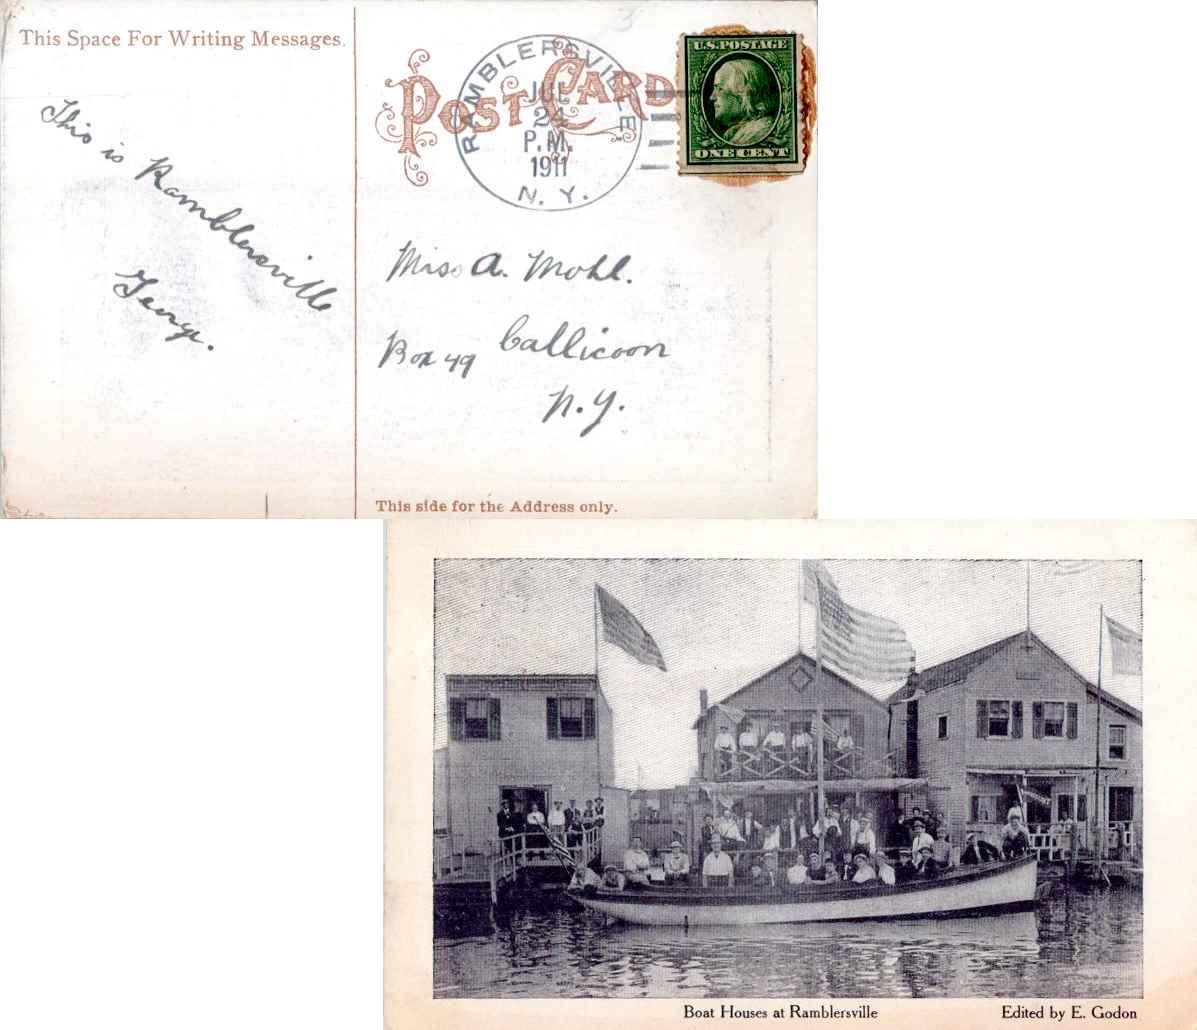 This Space For Writing Messages.
POST CARD
RAMBLERSVILLE.
JUL
24
P.M.
1911
N. Y.
U.S. POSTAGE
ONE CENT
This is Ramblersville
George.
Miss A. Mohl.
Box 49 Callicoon
N.Y.
This side for the Address only.
Boat Houses at Ramblersville
Edited by E. Godon